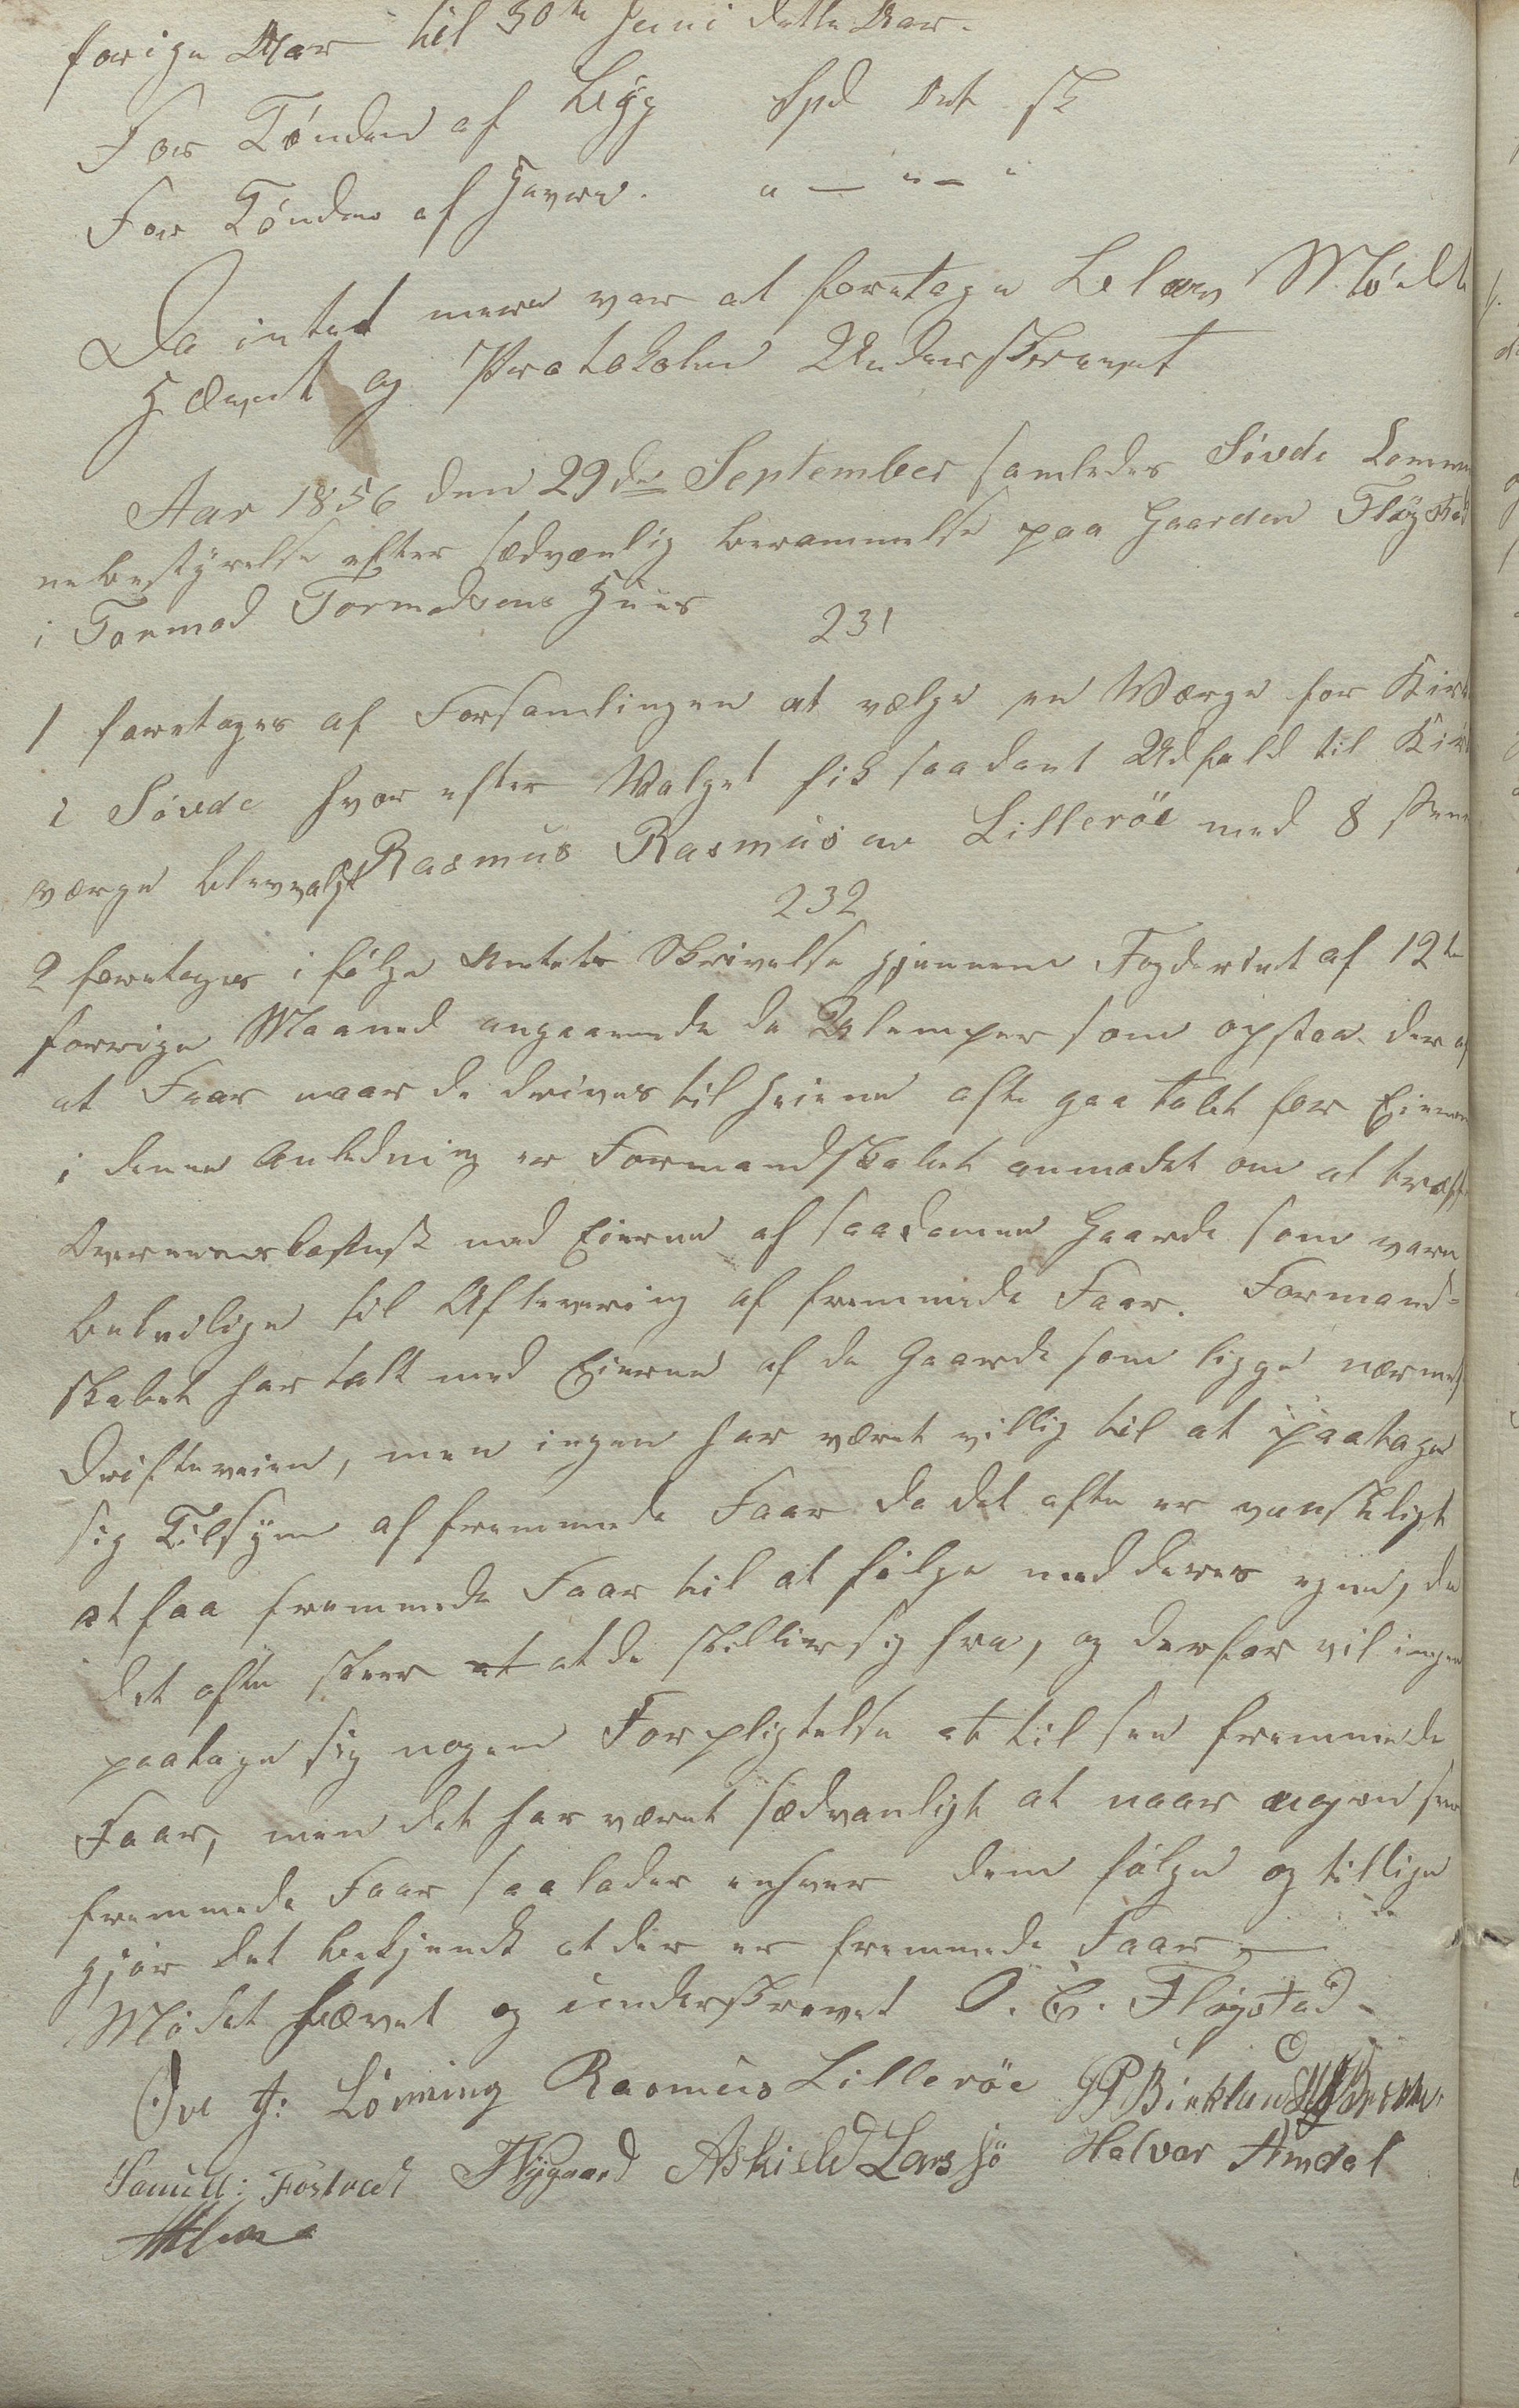 forige Aar til 30te Juni dette Aar.
For Tønden af Byg Spd Ort sk
For Tønden af Havre. " — " — "
Da intet mere var at foretage blev Mødet
Hævet og Protokolen Underskrevet
Aar 1856 den 29de September samledes Søvde Commu
nebestyrelse efter sædvanlig berammelse paa Gaarden Fløgstad
i Tormod Tormodsens Huus
231
1 foretoges af Forsamlingen at vælge en Værge for Kirk
i Søvde hvor efter Valget fik saadant Udfald til Kirk
værge blev valgt Rasmus Rasmusen Lillerøe med 8 stem
232
2 foretages i følge Amtets Skrivelse gjennem Fogderiet af 12te
forrige Maaned angaaende de Ulemper som opstaa der af
at Faar naar de drives til Heiene ofte gaa tabt for Eieren
i denne Anledning er Formandskabet anmodet om at træffe
Overeenskomst med Eierne af saadanne Gaarde som vare
beleilige til Aflevering af fremmede Faar. Formand-
skabet har talt med Eierne af de Gaarde som ligge nærmest
Drifteveien, men ingen har været villig til at paatage
sig Tilsyn af fremmede Faar da det ofte er vanskeligt
at faa fremmede Faar til at følge med deres egne, da
det ofte skeer at at de skiller sig fra, og derfor vil ingen
paatage sig nogen Forpligtelse at til see fremmede
Faar, men det har været sædvanligt at naar nogen seer
fremmede Faar saa lader enhver dem følge og tillige
gjør det bekjendt at der er fremmede Faar —
Mødet hævet og underskrevet O. E. Fløgstad
Ove J: Lönning Rasmus Lillerøe PP Birkland
Samuel: Fostvedt Nygaard Askield Lars Jø Halvor Amdal